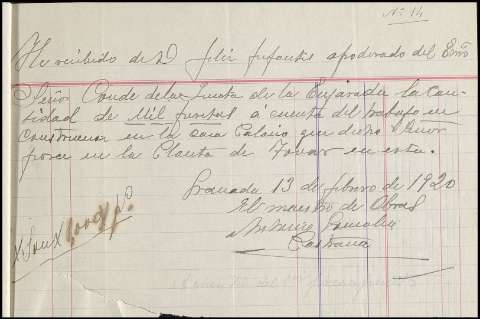 Nº 14
He recibido de D Felix Infante apoderado del Exmo
Señor Conde de las Infanta de la Enjarada la can-
tidad de Mil pesetas á cuenta del trabajo en
construccion en la casa Palacio que dicho Señor
posee en la Placeta de Tovar en esta.
Granada 13 de febrero de 1920
El maestro de Obras
Antonio Gonzalez
Son 1,000 pts